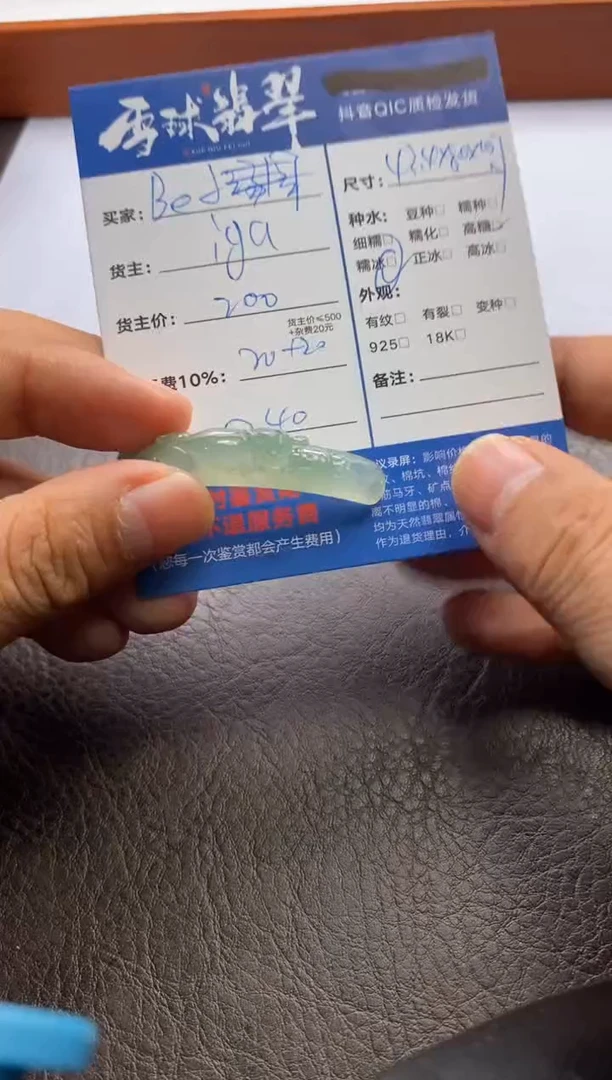 雪球翡翠
抖音QIC质检发货
买家：Be
货主：iga
货主价：200
货主价≤500
+杂费20元
费10%：20+20
240
不退服务费
（您每一次鉴赏都会产生费用）
尺寸：43.4
种水： 豆种□ 糯种□
细糯□ 糯化□ 高糯
糯冰□ 正冰□ 高冰□
外观：
有纹□ 有裂□ 变种□
925□ 18K□
备注：
议录屏：影响价
、棉坑、棉
筋马牙、矿点
离不明显的棉、
均为天然翡翠属性
作为退货理由，介